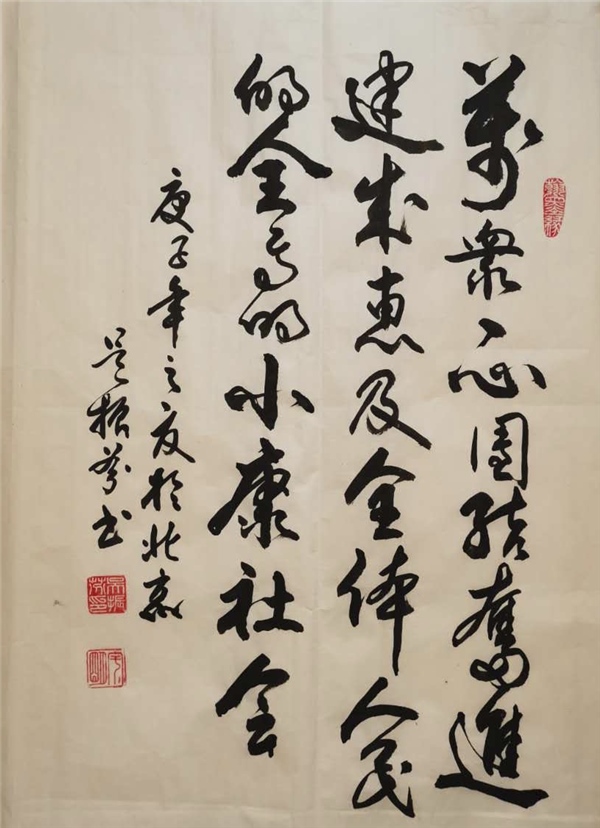 萬衆一心團結奮進
建成惠及全体人民
的全面的小康社会
庚子年之夏於北京
吴振芬书